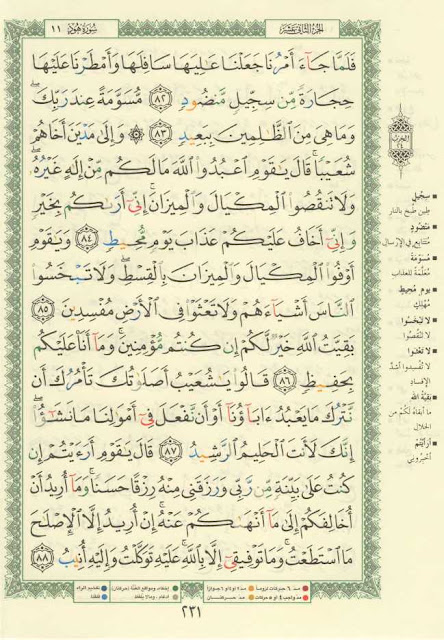 سُورَةُ هُود ١١
الجُزءُ الثَّانِي عَشَرَ
فَلَمَّا جَآءَ أَمْرُنَا جَعَلْنَا عَٰلِيَهَا سَافِلَهَا وَأَمْطَرْنَا عَلَيْهَا
حِجَارَةً مِّن سِجِّيلٍ مَّنضُودٍ ٨٢ مُّسَوَّمَةً عِندَ رَبِّكَۖ
وَمَا هِىَ مِنَ ٱلظَّٰلِمِينَ بِبَعِيدٍ ٨٣ ۞ وَإِلَىٰ مَدْيَنَ أَخَاهُمْ
شُعَيْبًاۚ قَالَ يَٰقَوْمِ ٱعْبُدُوا۟ ٱللَّهَ مَا لَكُم مِّنْ إِلَٰهٍ غَيْرُهُۥۖ
وَلَا تَنقُصُوا۟ ٱلْمِكْيَالَ وَٱلْمِيزَانَۚ إِنِّىٓ أَرَىٰكُم بِخَيْرٍ
وَإِنِّىٓ أَخَافُ عَلَيْكُمْ عَذَابَ يَوْمٍ مُّحِيطٍ ٨٤ وَيَٰقَوْمِ
أَوْفُوا۟ ٱلْمِكْيَالَ وَٱلْمِيزَانَ بِٱلْقِسْطِۖ وَلَا تَبْخَسُوا۟
ٱلنَّاسَ أَشْيَآءَهُمْ وَلَا تَعْثَوْا۟ فِى ٱلْأَرْضِ مُفْسِدِينَ ٨٥
بَقِيَّتُ ٱللَّهِ خَيْرٌ لَّكُمْ إِن كُنتُم مُّؤْمِنِينَۚ وَمَآ أَنَا۠ عَلَيْكُم
بِحَفِيظٍ ٨٦ قَالُوا۟ يَٰشُعَيْبُ أَصَلَوٰتُكَ تَأْمُرُكَ أَن
نَّتْرُكَ مَا يَعْبُدُ ءَابَآؤُنَآ أَوْ أَن نَّفْعَلَ فِىٓ أَمْوَٰلِنَا مَا نَشَٰٓؤُا۟ۖ
إِنَّكَ لَأَنتَ ٱلْحَلِيمُ ٱلرَّشِيدُ ٨٧ قَالَ يَٰقَوْمِ أَرَءَيْتُمْ إِن
كُنتُ عَلَىٰ بَيِّنَةٍ مِّن رَّبِّى وَرَزَقَنِى مِنْهُ رِزْقًا حَسَنًاۚ وَمَآ أُرِيدُ أَنْ
أُخَالِفَكُمْ إِلَىٰ مَآ أَنْهَىٰكُمْ عَنْهُۚ إِنْ أُرِيدُ إِلَّا ٱلْإِصْلَٰحَ
مَا ٱسْتَطَعْتُۚ وَمَا تَوْفِيقِىٓ إِلَّا بِٱللَّهِۚ عَلَيْهِ تَوَكَّلْتُ وَإِلَيْهِ أُنِيبُ ٨٨
الحزب
٢٤
سِجِّيلٍ
طِينٍ طُبِخَ بالنّارِ
مَنْضُودٍ
مُتَتَابِعٍ في الإرسال
مُسَوَّمَةً
مُعَلَّمَةً للعذاب
يوم مُحيطٍ
مُهْلِكٍ
لا تَبْخَسُوا
لا تَنْقُصُوا
لا تَعْثَوْا
لا تُفْسِدُوا أشَدَّ
الإفسادِ
بَقِيَّةُ الله
ما أبقاهُ لكم مِن
الحلال
أرَأيْتُمْ
أخبروني
مدّ ٦ حركات لزوماً
مدّ ٢ أو ٤ أو ٦ جوازاً
إخفاء، ومواقع الغُنَّة (حركتان)
تفخيم الراء
مدّ واجب ٤ أو ٥ حركات
مدّ حركتان
إدغام، وما لا يُلفَظ
قلقلة
٢٣١